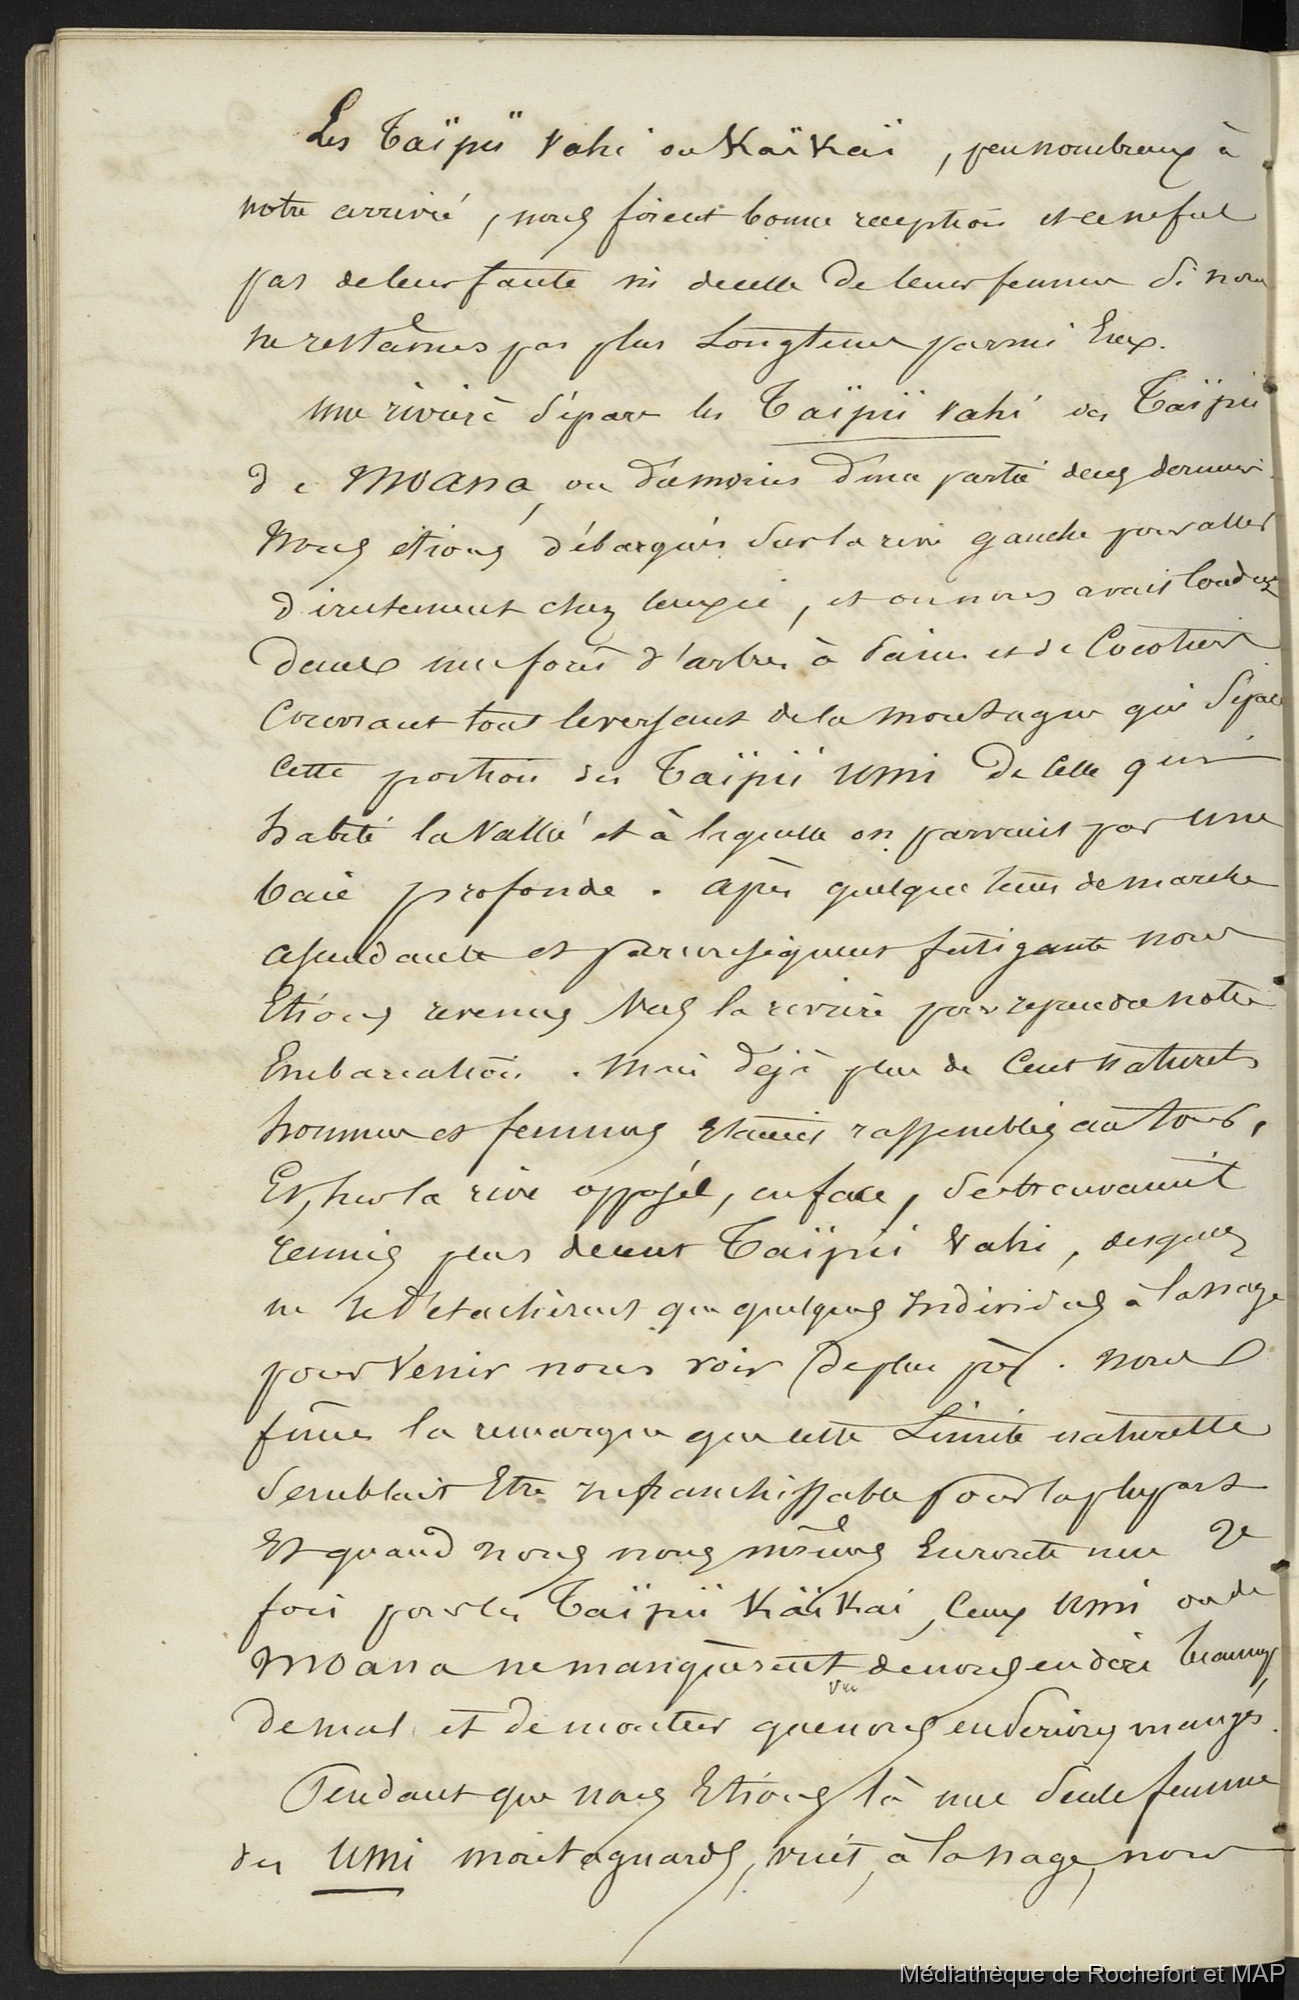 Les Taïpii Vahi ou KaïKaï, peu nombreux à
notre arrivée, nous firent bonne reception et ce ne fut
pas de leur faute ni de celle de leurs femmes si nous
ne restâmes pas plus Longtems parmi Eux.
une rivière sépare les Taïpii Vahi des Taïpii
de MOANA, ou du moins d'une partie de ces derniers.
Nous étions débarqués sur la rive gauche pour aller
directement chez, et on nous avait conduits
dans une forêt d'arbres à pain et de Cocotiers
Couvrant tout le versant de la montagne qui Sépare
Cette portion des Taïpii UMI De Celle qui
habite la Vallée et à laquelle on parvient par une
baie profonde. après quelque tems de marche
ascendante et par conséquent fatigante nous
Etions revenus vers la rivière pour reprendre notre
Embarcation. Mais déjà plus de Cent naturels
hommes et femmes étaient rassemblés autour,
Et, sur la rive opposée, en face, se trouvaient
réunis plus de cent Taïpii Vahi, desquels
ne se détachèrent que quelques Individus à la nage
pour Venir nous voir de plus près. nous
fîmes la remarque que cette Limite naturelle
semblait Etre infranchissable pour la plupart
Et quand nous nous mîmes En route une 2e
fois pour les Taïpii KaïKaï, Ceux UMI ou de
MOANA ne manquèrent de nous en dire beaucoup
de mal et de montrer que nous en serions mangés.
Pendant que nous Etions là une seule femme
des UMI montagnards, vint, à la nage, nous
Médiathèque de Rochefort et MAP